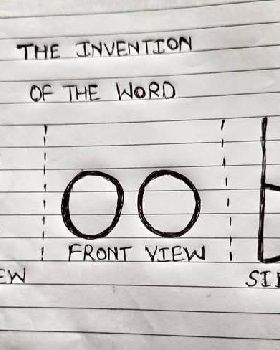 THE INVENTION
OF THE WORD
OO
FRONT VIEW
EW
SI